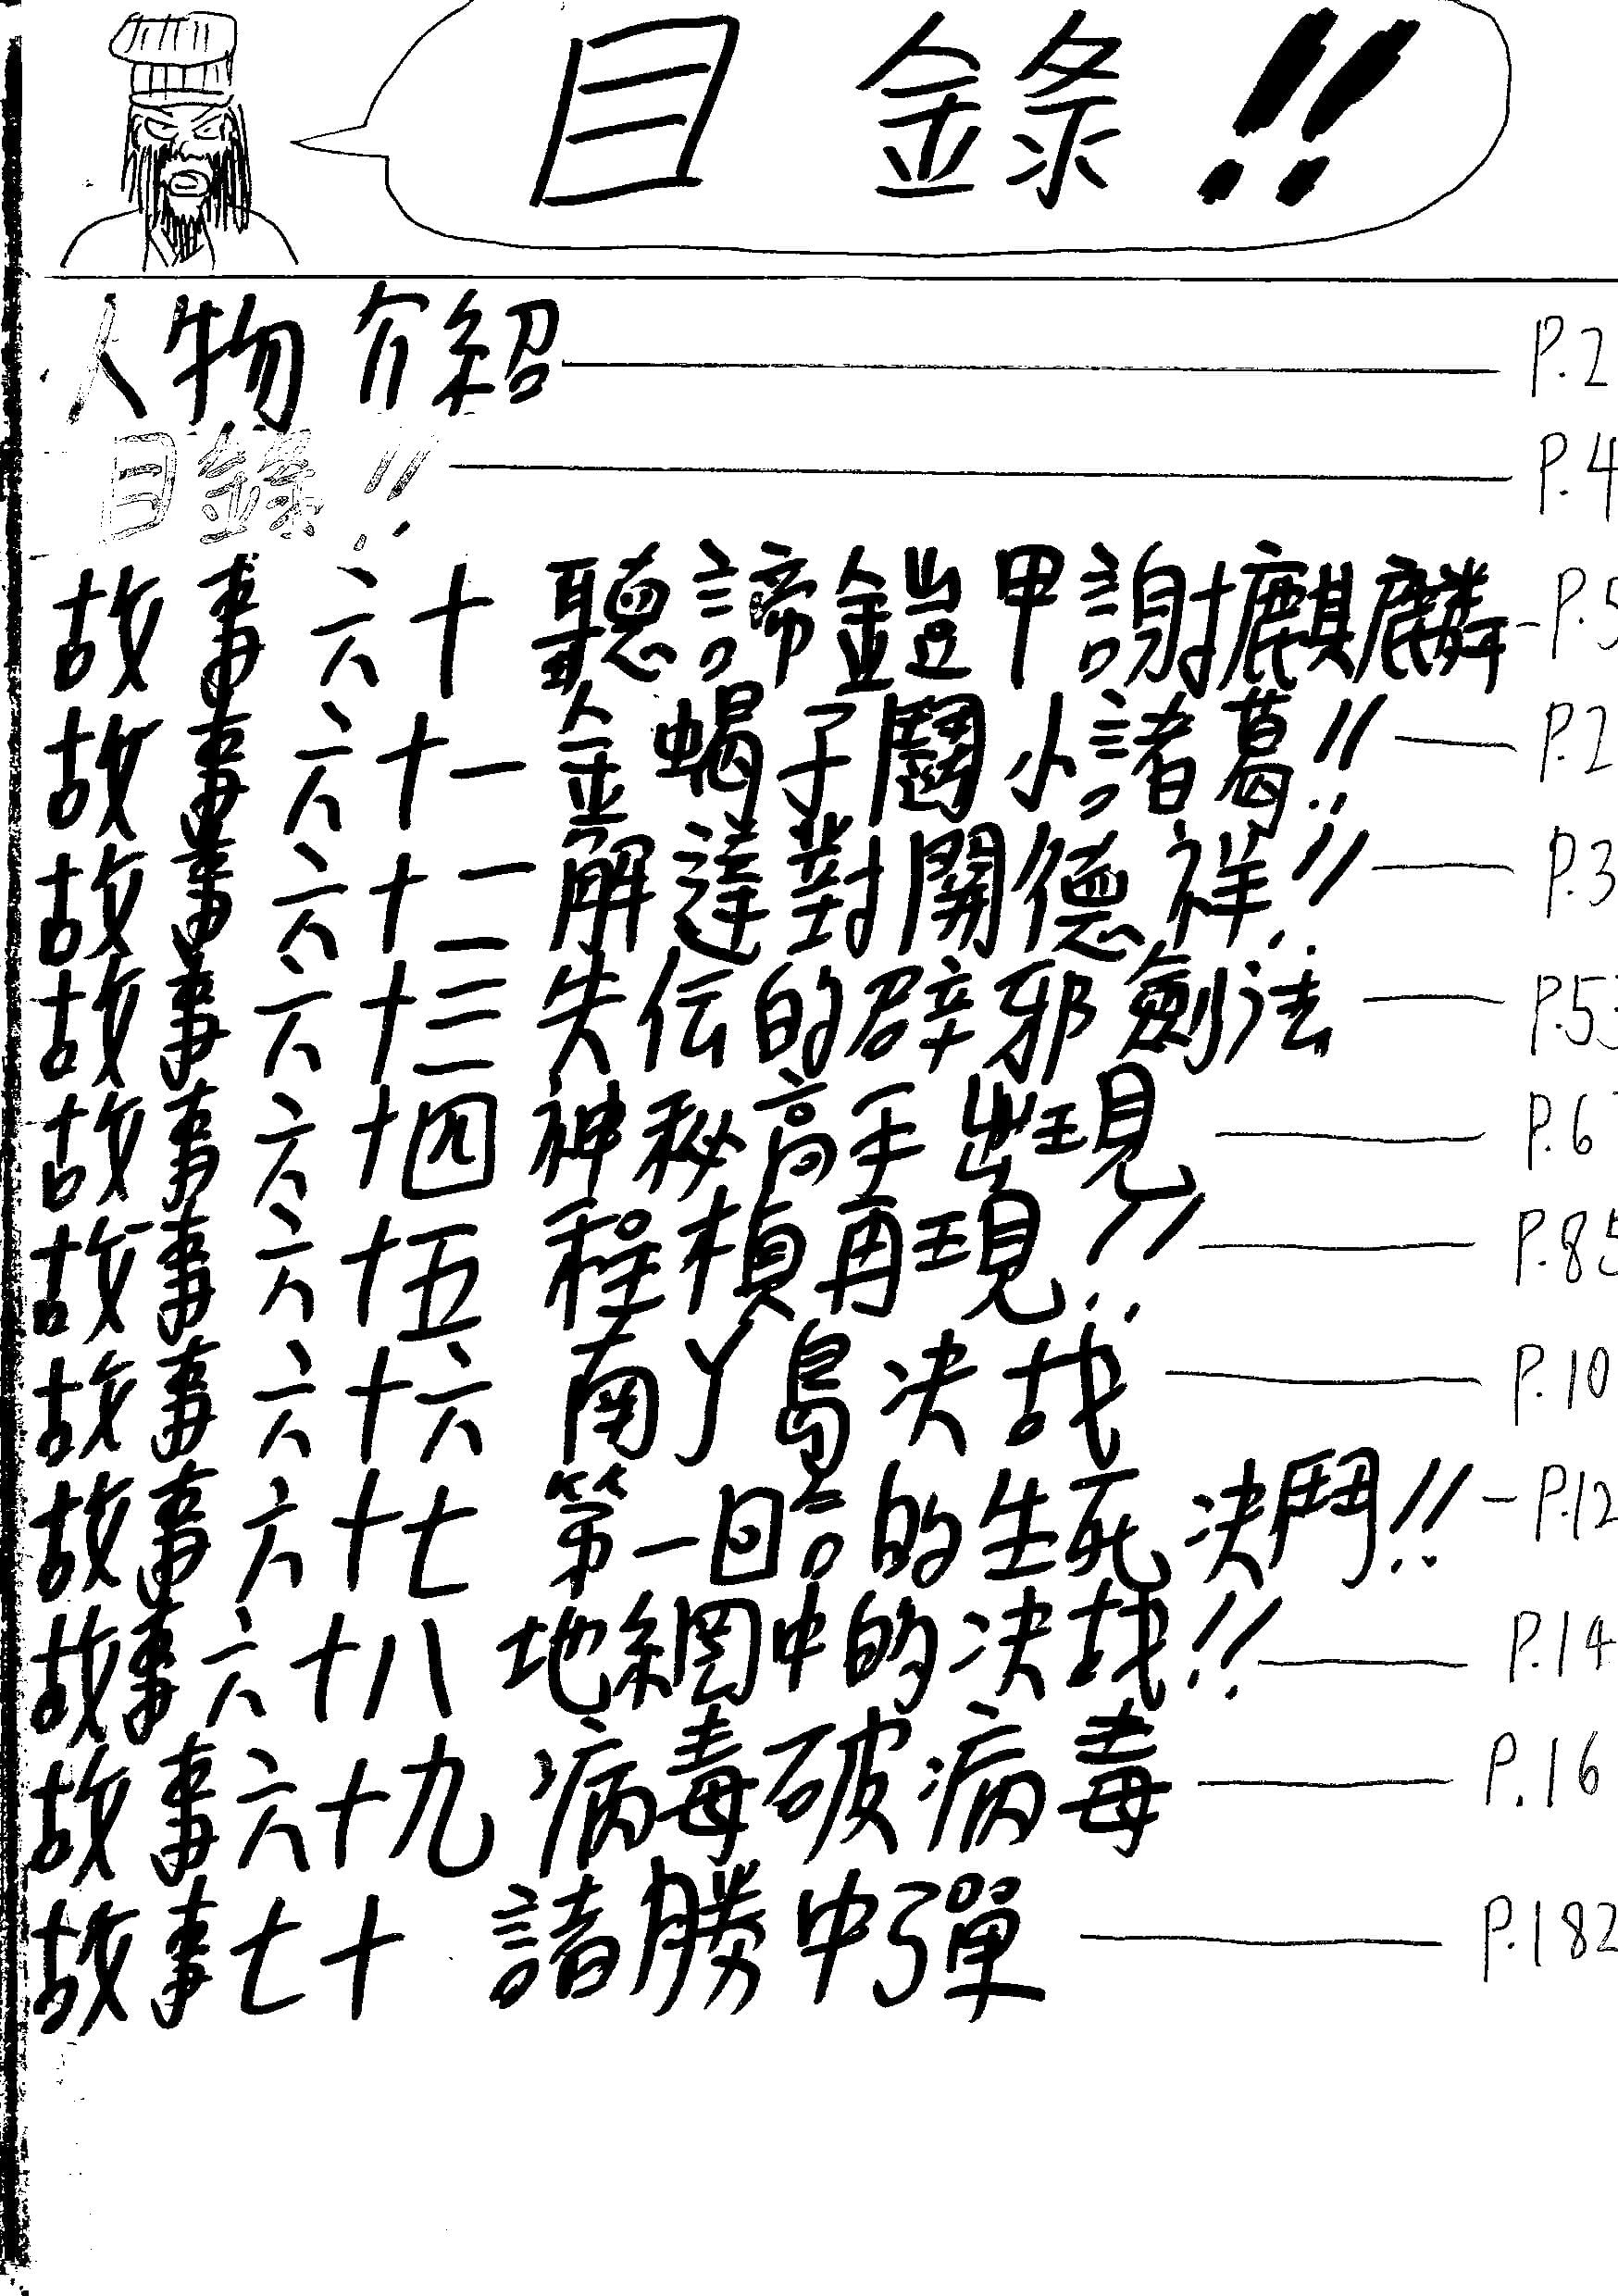 目錄!!
人物介紹 P.2
目錄!! P.4
故事六十 聽諦鎧甲謝麒麟 P.5
故事六十一 金蝎子鬪小諸葛!! P.2
故事六十二 解達對開德祥!! P.3
故事六十三 失伝的辟邪劍法 P.53
故事六十四 神秘高手出現 P.6
故事六十五 程楨再現!! P.85
故事六十六 南丫島决战 P.10
故事六十七 第一回合的生死决鬥!! P.12
故事六十八 地網中的决战!! P.14
故事六十九 病毒破病毒 P.16
故事七十 諸勝中彈 P.182